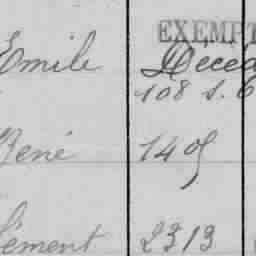 EXEMPT
Emile Décéd
108 S. C
René 1409
Clément 2313